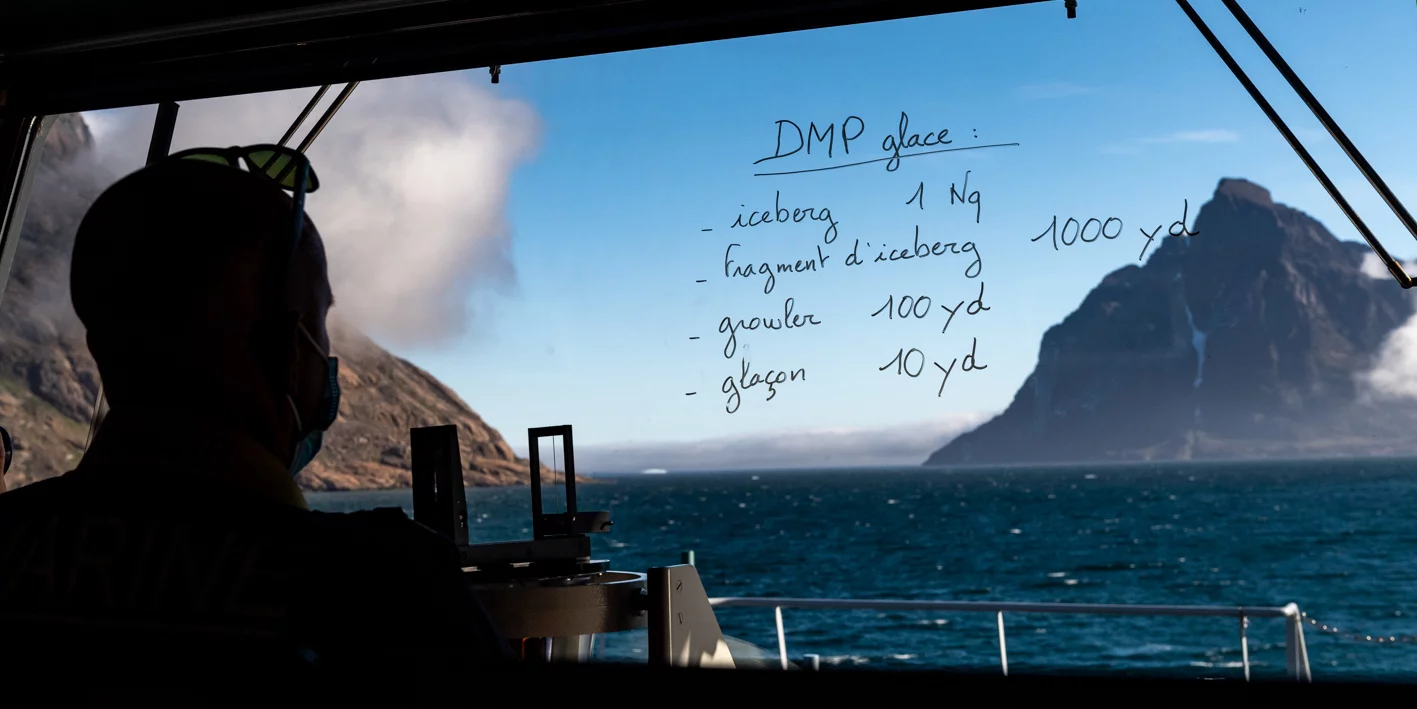 DMP glace :
- iceberg 1 Nq
- fragment d'iceberg 1000 yd
- growler 100 yd
- glaçon 10 yd
MARINE